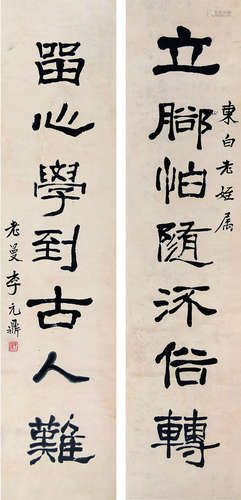 東白老姪属
立腳怕隨流俗轉
留心學到古人難
老曼李元鼎